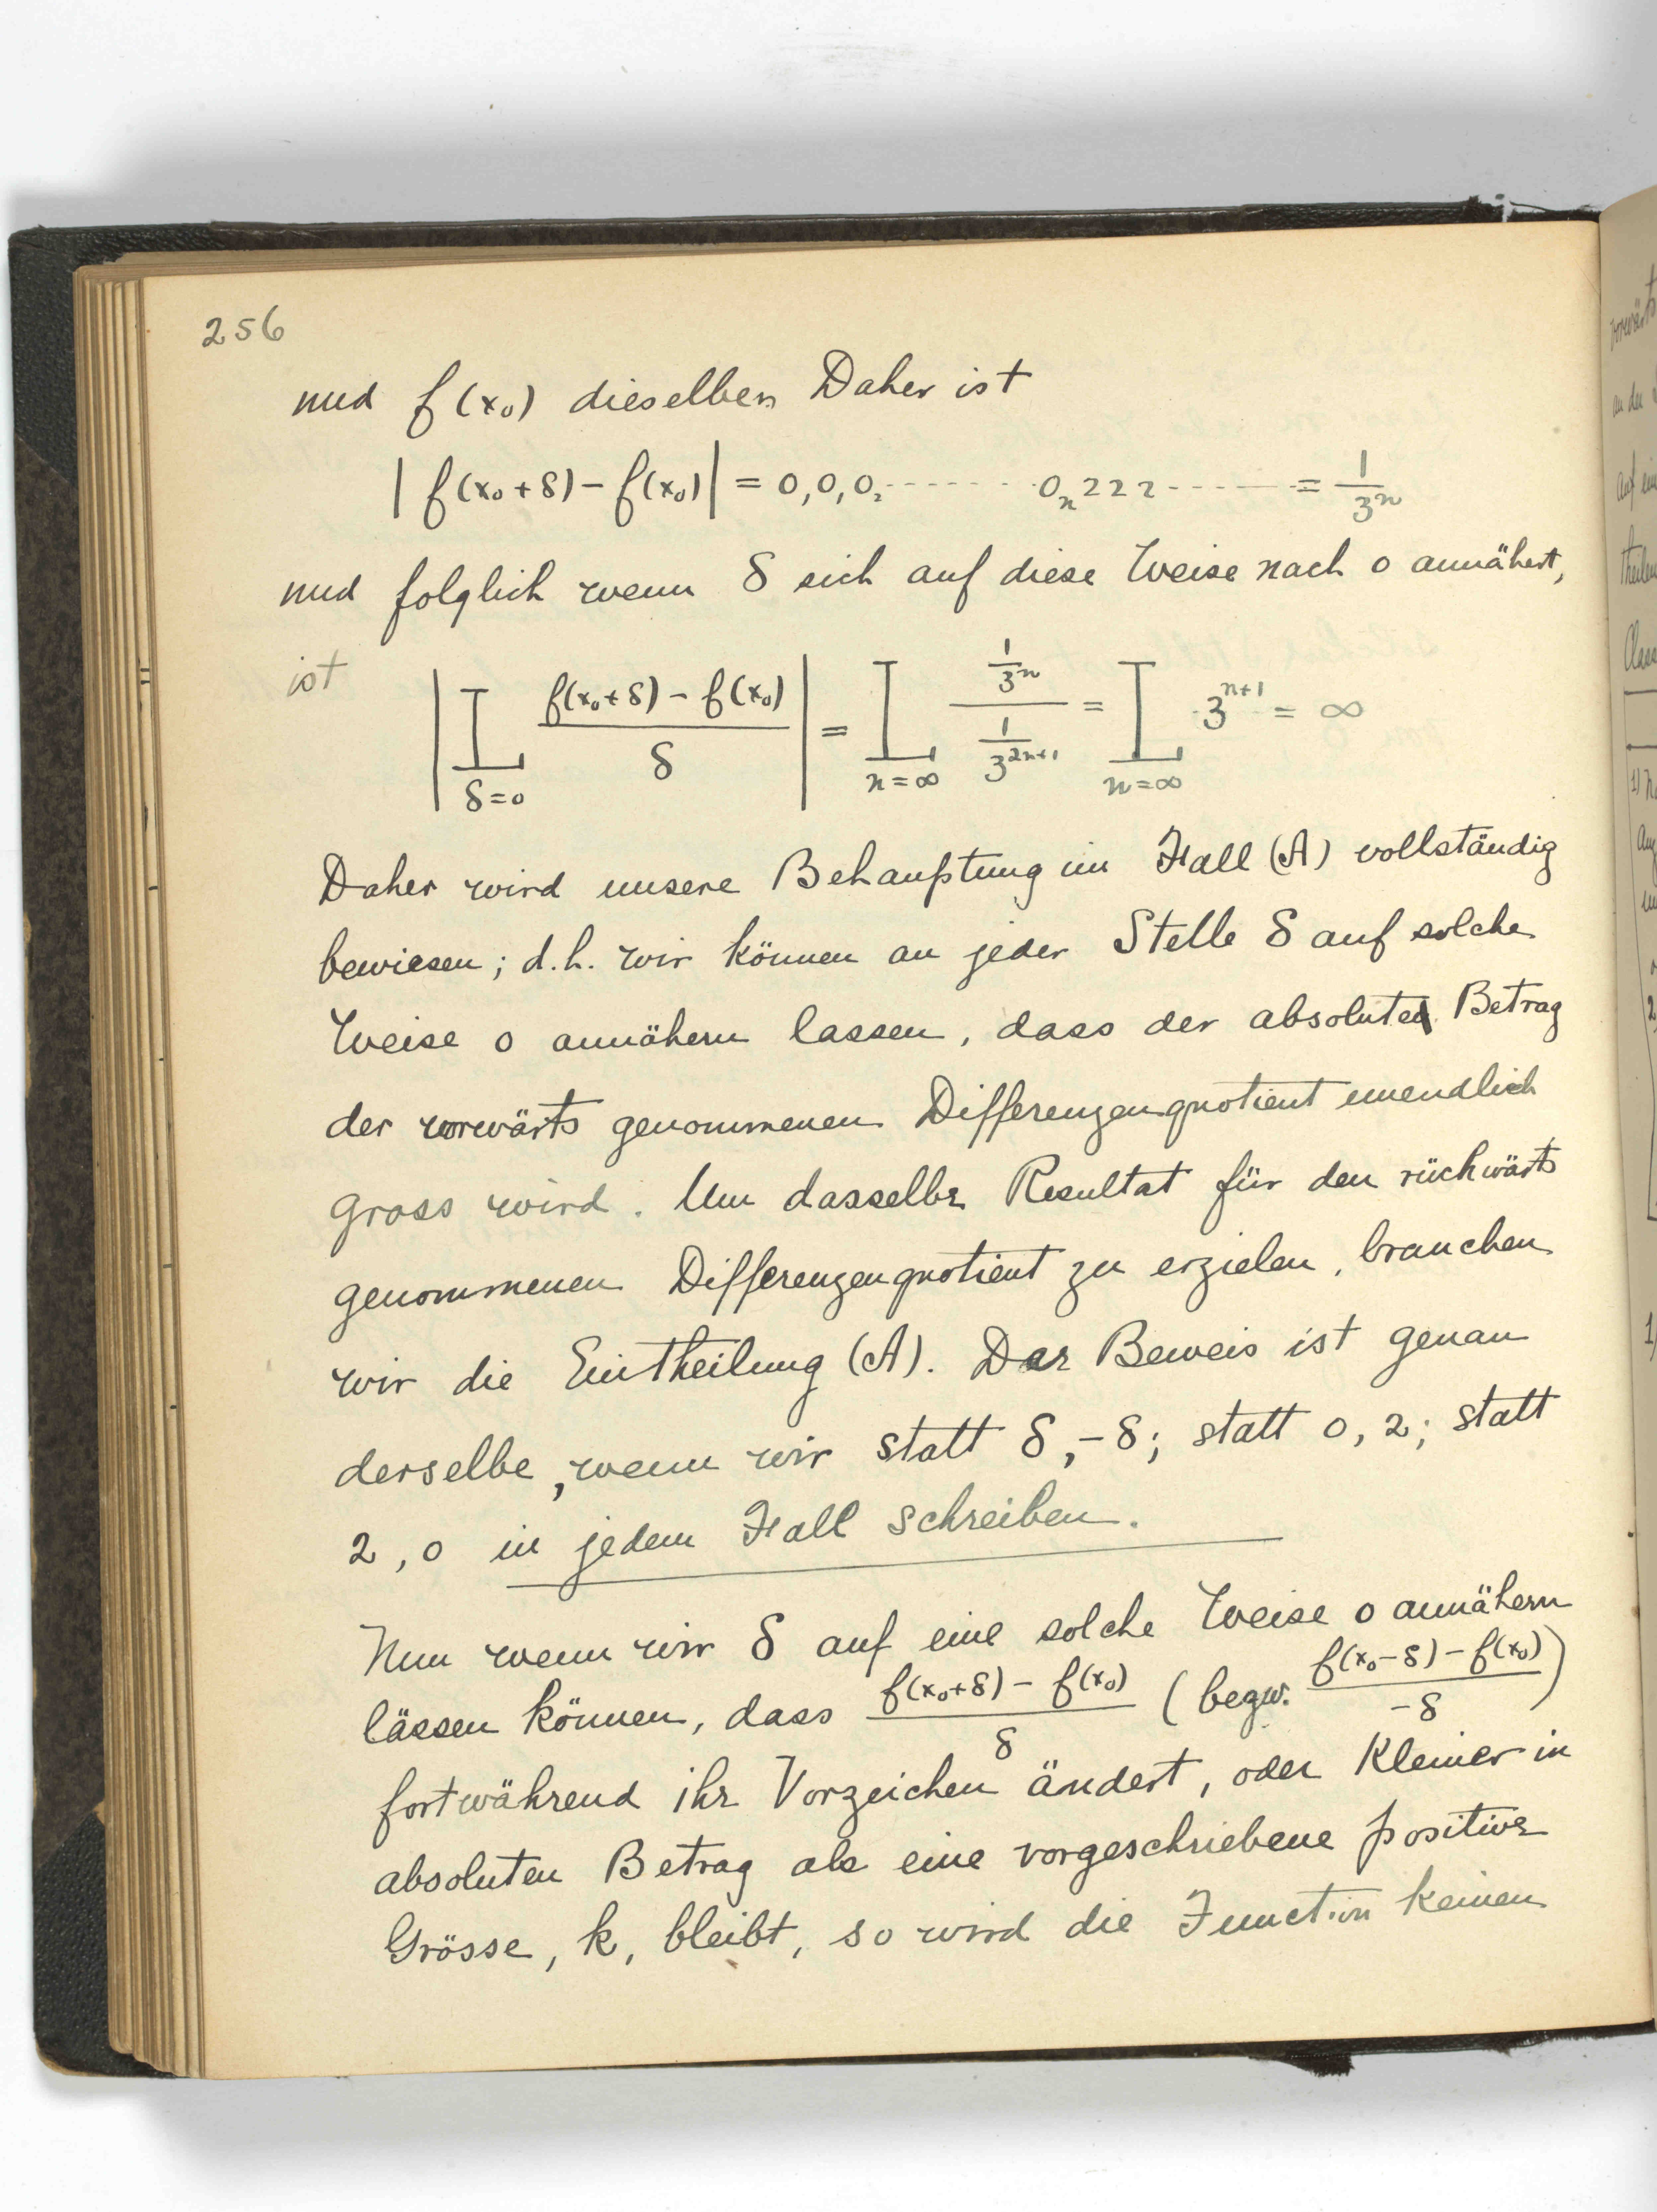 256
und f(x₀) dieselben Daher ist
| f(x₀+δ) – f(x₀) | = 0,0₁0₂ ------- 0ₙ222 ------ = 1/3ⁿ
und folglich wenn δ sich auf diese Weise nach 0 annähert,
ist | L_{δ=0} (f(x₀+δ) – f(x₀))/δ | = L_{n=∞} (1/3ⁿ)/(1/3²ⁿ⁺¹) = L_{n=∞} 3ⁿ⁺¹ = ∞
Daher wird unsere Behauptung im Fall (A) vollständig
bewiesen; d.h. wir können an jeder Stelle δ auf solche
Weise 0 annähern lassen, dass der absolute Betrag
der vorwärts genommenen Differenzenquotient unendlich
gross wird. Um dasselbe Resultat für den rückwärts
genommenen Differenzenquotient zu erzielen, brauchen
wir die Eintheilung (A). Der Beweis ist genau
derselbe, wenn wir statt δ, –δ; statt 0, 2; statt
2, 0 in jedem Fall schreiben.
Nun wenn wir δ auf eine solche Weise 0 annähern
lässen können, dass (f(x₀+δ) – f(x₀))/δ (bezw. (f(x₀–δ) – f(x₀))/–δ)
fortwährend ihr Vorzeichen ändert, oder kleiner in
absoluten Betrag als eine vorgeschriebene positive
Grösse, k, bleibt, so wird die Function keinen